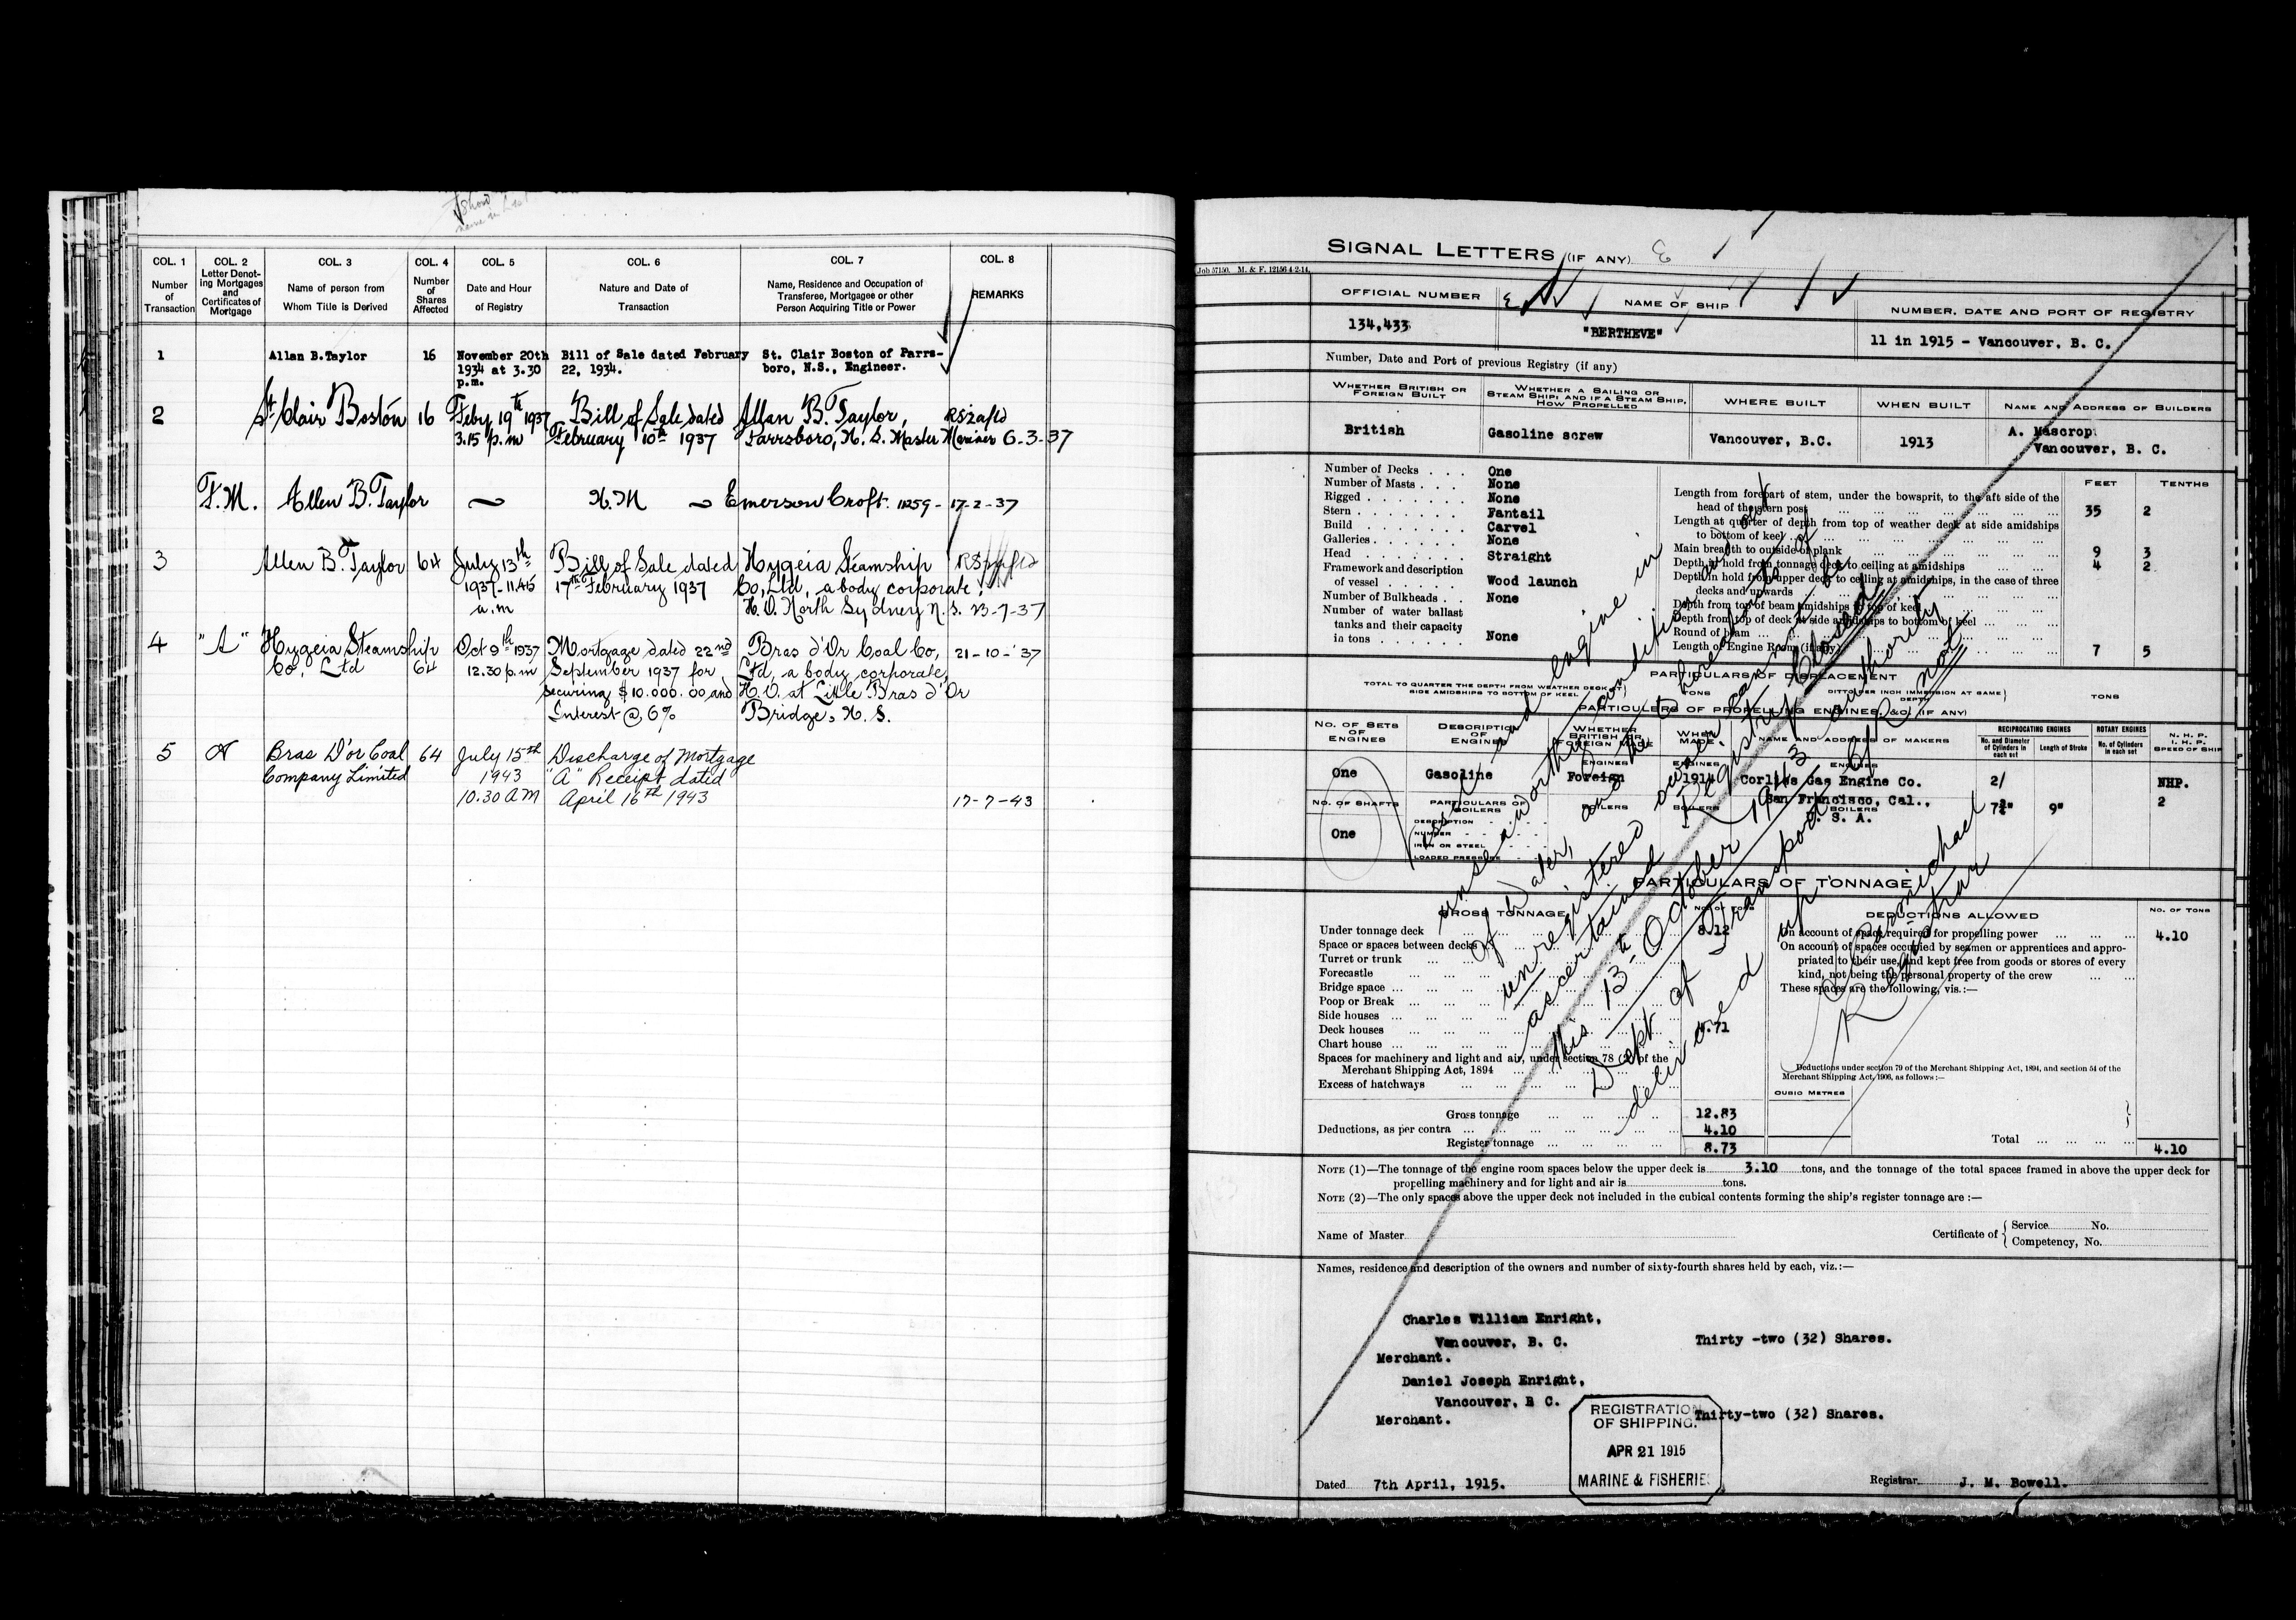 Show
name in
COL. 1 COL. 2 COL. 3 COL. 4 COL. 5 COL. 6 COL. 7 COL. 8
Number of Transaction
Letter Denoting Mortgages and Certificates of Mortgage
Name of person from Whom Title is Derived
Number of Shares Affected
Date and Hour of Registry
Nature and Date of Transaction
Name, Residence and Occupation of Transferee, Mortgagee or other Person Acquiring Title or Power
REMARKS
1 Allan B.Taylor 16 November 20th Bill of Sale dated February St. Clair Boston of Parrs-
1934 at 3.30 22, 1934. boro, N.S., Engineer.
p.m.
2 St Clair Boston 16 Feby 19th 1937 Bill of Sale dated Allan B. Taylor,
3.15 p.m February 10th 1937 Parrsboro, N. S. Master Mariner 6-3-37
F.M. Allen B. Taylor N.M Emerson Croft. 11259- 17-2-37
3 Allen B. Taylor 64 July 13th Bill of Sale dated Hygeia Steamship
1937-11.45 17th February 1937 Co, Ltd, a body corporate,
a.m H.O. North Sydney N. S. 23-7-37
4 "A" Hygeia Steamship Oct 9th 1937 Mortgage dated 22nd Bras d'Or Coal Co, 21-10-'37
Co, Ltd 64 12.30 p.m September 1937 for Ltd, a body corporate,
securing $10.000.00 and H.O. at Little Bras d'Or
Interest @ 6% Bridge, N. S.
5 A Bras D'or Coal 64 July 15th Discharge of Mortgage
Company Limited 1943 "A" Receipt dated
10.30 AM April 16th 1943 17-7-43
SIGNAL LETTERS (IF ANY)
Job 57150. M. & F. 12156 4-2-14.
OFFICIAL NUMBER NAME OF SHIP NUMBER, DATE AND PORT OF REGISTRY
134,433 "BERTHEVE" 11 in 1915 - Vancouver, B. C.
Number, Date and Port of previous Registry (if any)
WHETHER BRITISH OR FOREIGN BUILT
WHETHER A SAILING OR STEAM SHIP; AND IF A STEAM SHIP, HOW PROPELLED
WHERE BUILT WHEN BUILT NAME AND ADDRESS OF BUILDERS
British Gasoline screw Vancouver, B.C. 1913 A. Mascrop
Vancouver, B. C.
Number of Decks . . . One
Number of Masts . . . None
Rigged . . . . . . . None
Stern . . . . . . . . Fantail
Build . . . . . . . . Carvel
Galleries . . . . . . None
Head . . . . . . . . Straight
Framework and description
of vessel . . . . . Wood launch
Number of Bulkheads . . None
Number of water ballast
tanks and their capacity
in tons . . . . . . None
FEET TENTHS
Length from forepart of stem, under the bowsprit, to the aft side of the
head of the stern post 35 2
Length at quarter of depth from top of weather deck at side amidships
to bottom of keel
Main breadth to outside of plank 9 3
Depth in hold from tonnage deck to ceiling at amidships 4 2
Depth in hold from upper deck to ceiling at amidships, in the case of three
decks and upwards
Depth from top of beam amidships to top of keel
Depth from top of deck at side amidships to bottom of keel
Round of beam
Length of Engine Room (if any) 7 5
PARTICULARS OF DISPLACEMENT
TOTAL TO QUARTER THE DEPTH FROM WEATHER DECK AT SIDE AMIDSHIPS TO BOTTOM OF KEEL TONS DITTO PER INCH IMMERSION AT SAME DEPTH TONS
PARTICULARS OF PROPELLING ENGINES, &C. (IF ANY)
NO. OF SETS OF ENGINES
DESCRIPTION OF ENGINES
WHETHER BRITISH OR FOREIGN MADE
WHEN MADE
NAME AND ADDRESS OF MAKERS
RECIPROCATING ENGINES
No. and Diameter of Cylinders in each set
Length of Stroke
ROTARY ENGINES
No. of Cylinders in each set
N. H. P.
I. H. P.
SPEED OF SHIP
ENGINES ENGINES ENGINES
One Gasoline Foreign 1914 Corliss Gas Engine Co. 2/ NHP.
San Francisco, Cal., 7¾" 9" 2
U. S. A.
NO. OF SHAFTS PARTICULARS OF BOILERS BOILERS BOILERS BOILERS
One
DESCRIPTION
NUMBER
IRON OR STEEL
LOADED PRESSURE
Vessel and engine in
unseaworthy condition
of Water, and the whereabouts of
unregistered owner cannot be
ascertained Registry Closed
this 13th October 1943
Dept of Transport
delivered up
Registrar
PARTICULARS OF TONNAGE
GROSS TONNAGE NO. OF TONS
Under tonnage deck 8.12
Space or spaces between decks
Turret or trunk
Forecastle
Bridge space
Poop or Break
Side houses
Deck houses 4.71
Chart house
Spaces for machinery and light and air, under section 78 (2) of the
Merchant Shipping Act, 1894
Excess of hatchways
Gross tonnage 12.83
Deductions, as per contra 4.10
Register tonnage 8.73
DEDUCTIONS ALLOWED NO. OF TONS
On account of space required for propelling power 4.10
On account of spaces occupied by seamen or apprentices and appro-
priated to their use, and kept free from goods or stores of every
kind, not being the personal property of the crew
These spaces are the following, vis.:—
Deductions under section 79 of the Merchant Shipping Act, 1894, and section 54 of the
Merchant Shipping Act, 1906, as follows:—
CUBIC METRES
Total 4.10
NOTE (1)—The tonnage of the engine room spaces below the upper deck is 3.10 tons, and the tonnage of the total spaces framed in above the upper deck for
propelling machinery and for light and air is tons.
NOTE (2)—The only spaces above the upper deck not included in the cubical contents forming the ship's register tonnage are :—
Name of Master
Certificate of { Service No.
Competency, No.
Names, residence and description of the owners and number of sixty-fourth shares held by each, viz.:—
Charles William Enright,
Vancouver, B. C. Thirty -two (32) Shares.
Merchant.
Daniel Joseph Enright,
Vancouver, B C.
Merchant. Thirty-two (32) Shares.
REGISTRATION
OF SHIPPING.
APR 21 1915
MARINE & FISHERIES
Dated 7th April, 1915. Registrar J. M. Bowell.